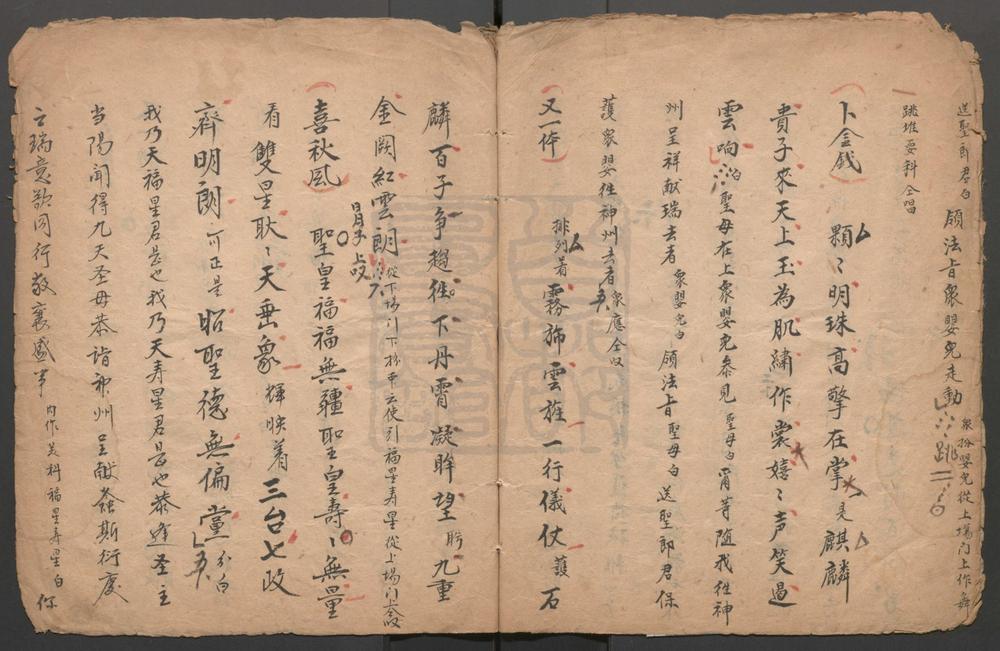 送聖郎君白　領法旨衆嬰兒走動　衆扮嬰兒從上場門上作舞
跳堆要科仝唱
卜金錢　顆〻明珠高擎在掌見麒麟
貴子來天上玉為肌繡作裳嬉〻声笑過
雲响　白聖母在上衆嬰兒叅見　聖母白　甭等随我徃神
州呈祥献瑞去者　衆嬰兒白　領法旨聖母白　送聖郎君保
護衆嬰徃神州去者　衆應仝吹
又一体　排列着霧斾雲旌一行儀仗護石
麟百子争趨徃下丹霄凝眸望盻九重
金闕紅雲朗　從下場門下扮雲使引福星寿星從上場門上吹
喜秋風　聖皇福福無疆聖皇壽〻無量
看雙星耿〻天垂象輝映着三台七政
齊明朗可正是昭聖德無偏黨　分白
我乃天福星君是也我乃天寿星君是也恭逢圣主
當陽聞得九天圣母恭詣神州呈献螽斯衍慶
之瑞意欲同行敬襄盛事　内作笑科福星寿星白　你